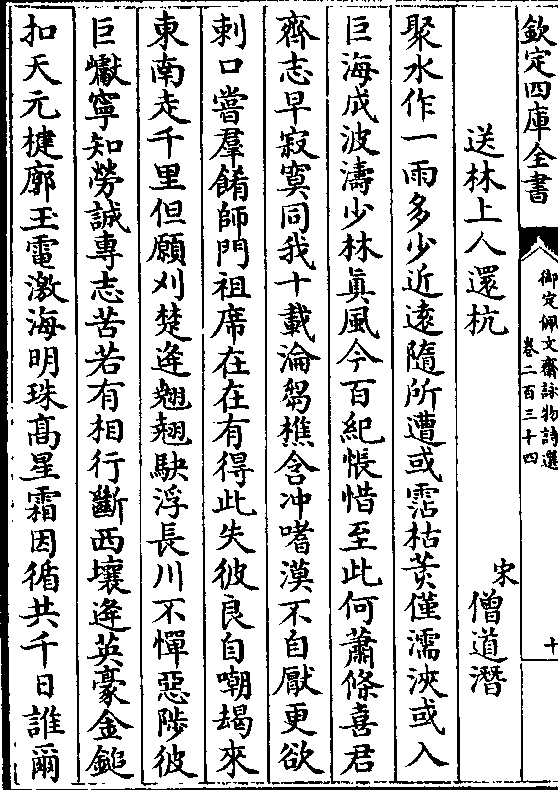 欽定四庫全書
御定佩文齋詠物詩選
卷二百三十四
十
送林上人還杭
宋僧道潛
聚水作一雨多少近逺隨所遭或霑枯荄僅濡浹或入
巨海成波濤少林眞風今百紀悵惜至此何蕭條喜君
齊志早寂寞同我十載淪芻樵含冲嗜漠不自厭更欲
刺口嘗羣餚師門祖席在在有得此失彼良自嘲朅來
東南走千里但願刈楚逄翹翹駃浮長川不憚惡陟彼
巨巘寧知勞誠專志苦若有相行斷西壤逄英豪金鎚
扣天元楗廓玉電激海明珠髙星霜因循共千日誰爾